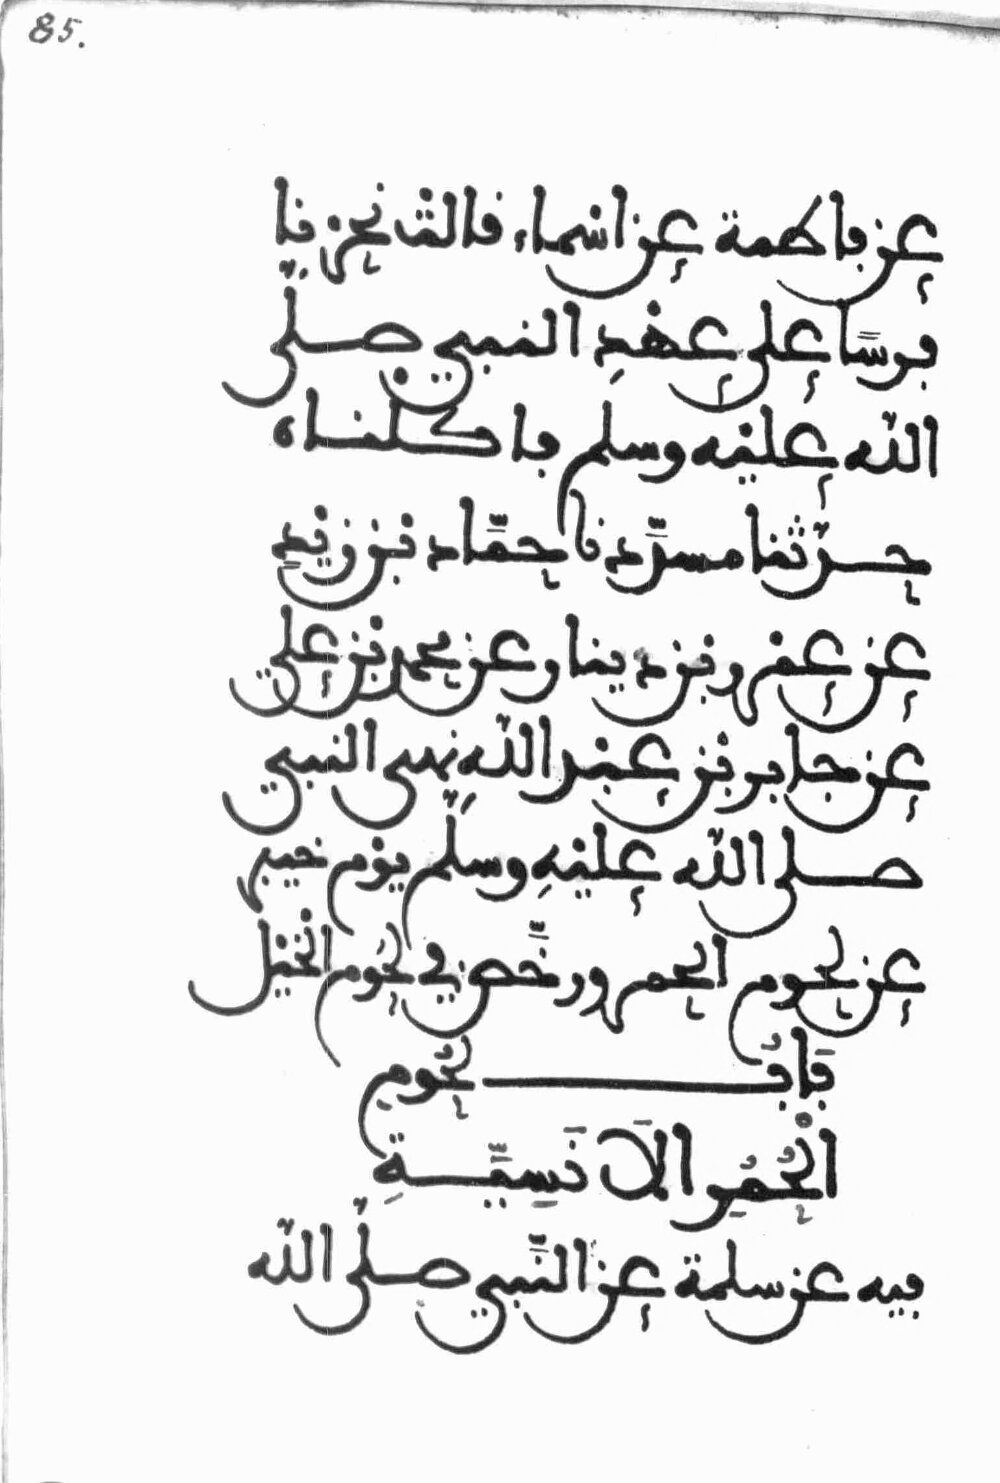 85.
عن فاطمة عن اسماء قالت نحرنا
فرسا على عهد النبي صلى
الله عليه وسلم فاكلناه
حدثنا مسدد نا حماد بن زيد
عن عمرو بن دينار عن محمد بن علي
عن جابر بن عبد الله نهى النبي
صلى الله عليه وسلم يوم خيبر
عن لحوم الحمر ورخص في لحوم الخيل
بَابُ لُحُومِ
الْحُمُرِ الاَنَسِيَّةِ
فيه عن سلمة عن النبي صلى الله